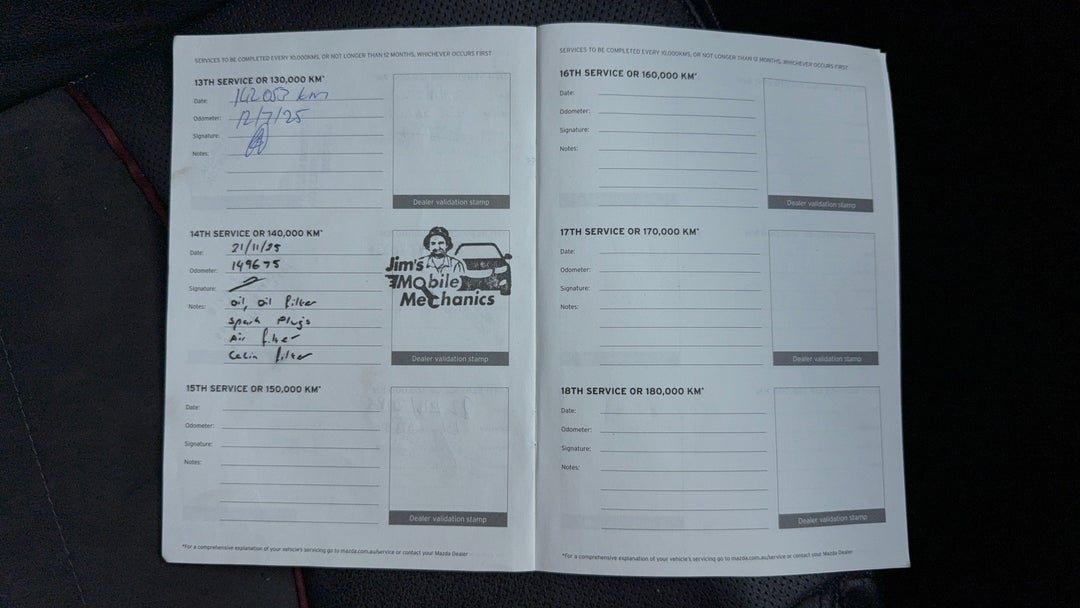 SERVICES TO BE COMPLETED EVERY 10,000KMS, OR NOT LONGER THAN 12 MONTHS, WHICHEVER OCCURS FIRST
13TH SERVICE OR 130,000 KM*
Date: 142053 km
Odometer: 12/7/25
Signature:
Notes:
Dealer validation stamp
14TH SERVICE OR 140,000 KM*
Date: 21/11/25
Odometer: 149675
Signature:
Notes: oil, oil filter
spark plugs
Air filter
Cabin filter
Jim's
Mobile
Mechanics
Dealer validation stamp
15TH SERVICE OR 150,000 KM*
Date:
Odometer:
Signature:
Notes:
Dealer validation stamp
*For a comprehensive explanation of your vehicle's servicing go to mazda.com.au/service or contact your Mazda Dealer
SERVICES TO BE COMPLETED EVERY 10,000KMS, OR NOT LONGER THAN 12 MONTHS, WHICHEVER OCCURS FIRST
16TH SERVICE OR 160,000 KM*
Date:
Odometer:
Signature:
Notes:
Dealer validation stamp
17TH SERVICE OR 170,000 KM*
Date:
Odometer:
Signature:
Notes:
Dealer validation stamp
18TH SERVICE OR 180,000 KM*
Date:
Odometer:
Signature:
Notes:
Dealer validation stamp
*For a comprehensive explanation of your vehicle's servicing go to mazda.com.au/service or contact your Mazda Dealer